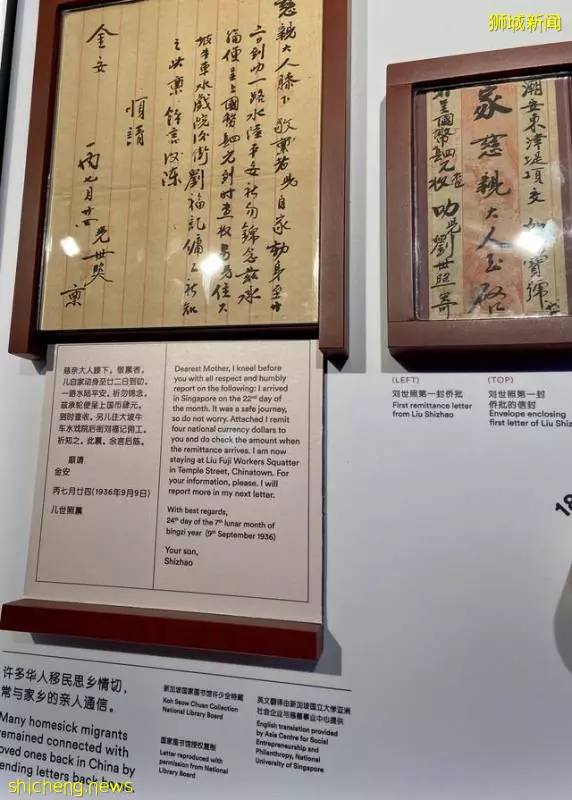 狮城新闻
慈親大人膝下 敬禀者 兒自家動身至廿
二日到叻一路水陸平安祈勿錦念茲承
輪便呈上國幣肆元到时查收另兒住大
坡牛車水戲院後街劉福記傭工祈知
之此禀餘言後陳
順請
金安
丙七月廿四 兒世照 禀
潮安東津堤頂交
家慈親大人玉啟
呈國幣肆元查收 叻兒劉世照寄
慈亲大人膝下。敬禀者。
儿自家动身至廿二日到叻。
一路水陆平安。祈勿锦念。
兹承轮便呈上国币肆元。
到时查收。另儿住大坡牛
车水戏院后街刘福记佣工。
祈知之。此禀。余言后陈。
顺请
金安
丙七月廿四(1936年9月9日)
儿世照禀
Dearest Mother, I kneel before
you with all respect and humbly
report on the following: I arrived
in Singapore on the 22nd day of
the month. It was a safe journey,
so do not worry. Attached I remit
four national currency dollars to
you and do check the amount when
the remittance arrives. I am now
staying at Liu Fuji Workers Squatter
in Temple Street, Chinatown. For
your information, please. I will
report more in my next letter.
With best regards,
24th day of the 7th lunar month of
bingzi year (9th September 1936)
Your son,
Shizhao
(LEFT)
刘世照第一封侨批
First remittance letter
from Liu Shizhao
(TOP)
刘世照第一封
侨批的信封
Envelope enclosing
first letter of Liu Shiz
18
许多华人移民思乡情切，
常与家乡的亲人通信。
Many homesick migrants
remained connected with
loved ones back in China by
sending letters back home.
新加坡国家图书馆许少全特藏
Koh Seow Chuan Collection
National Library Board
国家图书馆授权复制
Letter reproduced with
permission from National
Library Board
英文翻译由新加坡国立大学亚洲
社会企业与慈善事业中心提供
English translation provided
by Asia Centre for Social
Entrepreneurship and
Philanthropy, National
University of Singapore
shicheng.news